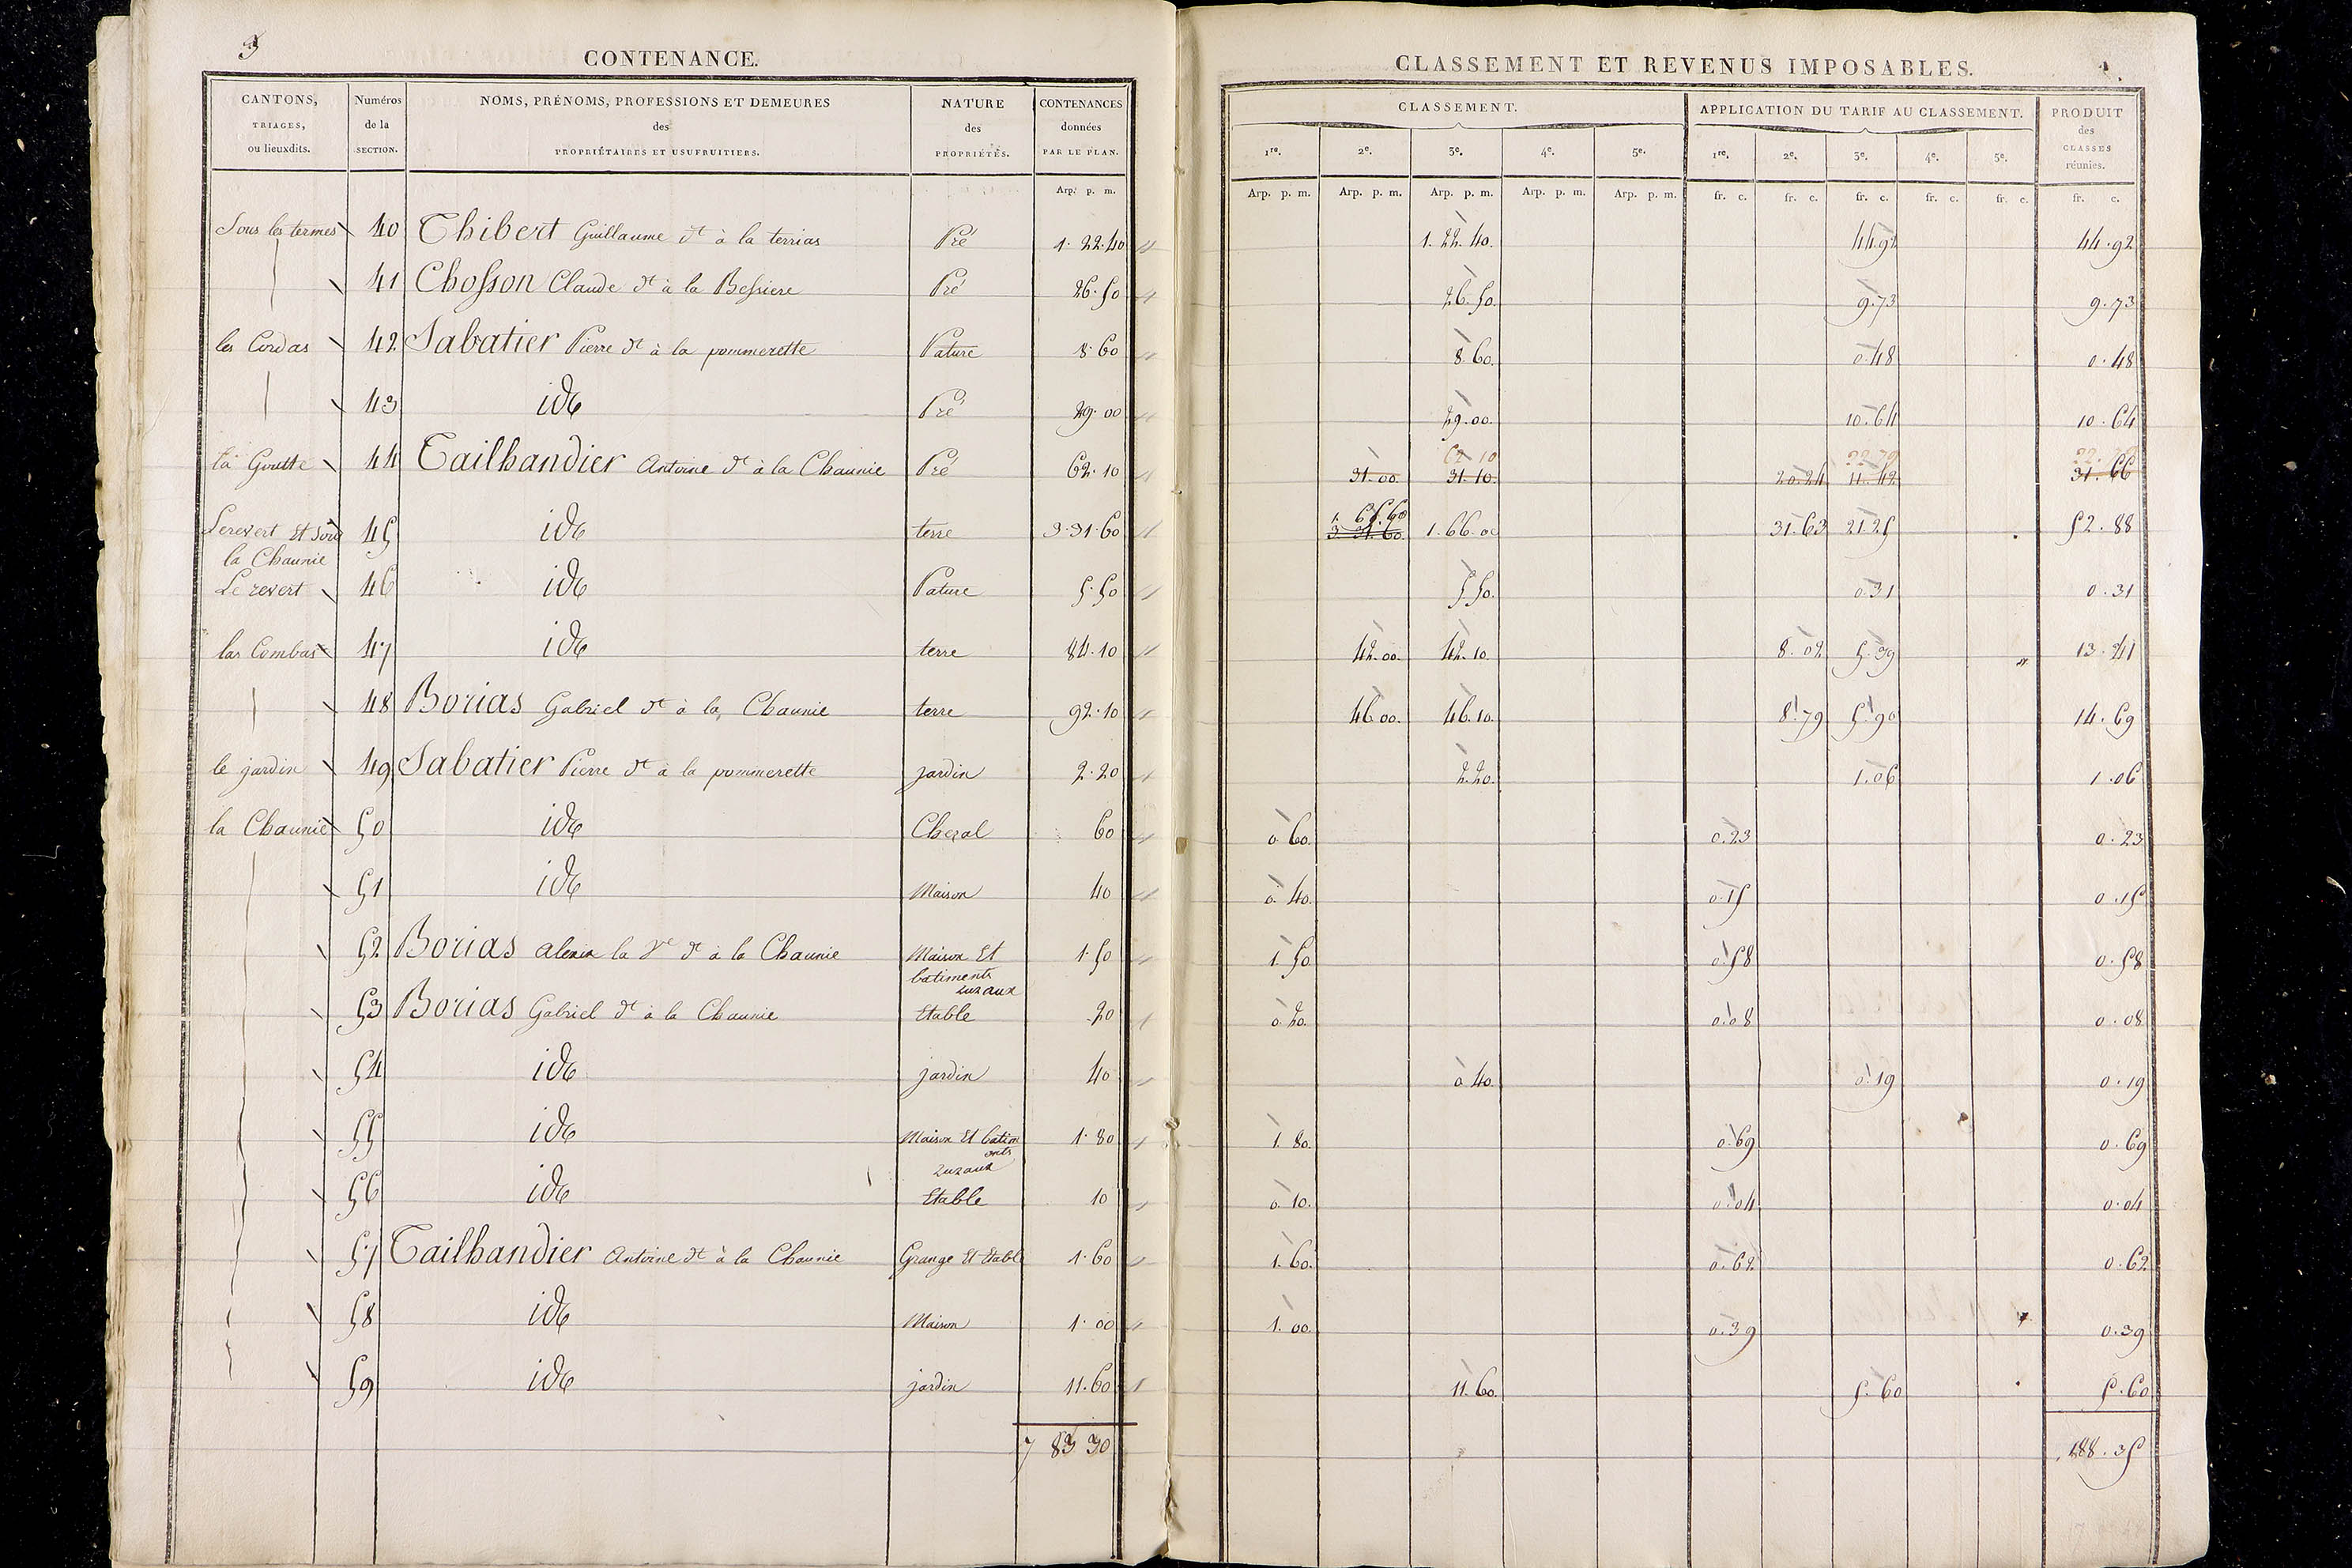 3
CONTENANCE.
CANTONS, TRIAGES, ou lieuxdits. Numéros de la SECTION. NOMS, PRÉNOMS, PROFESSIONS ET DEMEURES des PROPRIÉTAIRES ET USUFRUITIERS. NATURE des PROPRIÉTÉS. CONTENANCES données PAR LE PLAN.
Arp. p. m.
Sous les termes 40 Thibert Guillaume dt à la terrias Pré 1. 22. 40
41 Chosson Claude dt à la Bessiere Pré 26. 50
les Cordas 42 Sabatier Pierre dt à la pommerette Pature 8. 60
43 ide Pré 29. 00
la Goutte 44 Tailhandier Antoine dt à la Chaunie Pré 62. 10
Lerevert Et Sous la Chaunie 45 ide terre 3. 31. 60
Le revert 46 ide Pature 5. 50
las Combas 47 ide terre 84. 10
48 Borias Gabriel dt à la Chaunie terre 92. 10
le jardin 49 Sabatier Pierre dt à la pommerette jardin 2. 20
la Chaunie 50 ide Chezal 60
51 ide Maison 40
52 Borias alexis la Ve dt à la Chaunie Maison Et batiments ruraux 1. 50
53 Borias Gabriel dt à la Chaunie Etable 20
54 ide jardin 40
55 ide Maison Et batiments ruraux 1. 80
56 ide Etable 10
57 Tailhandier Antoine dt à la Chaunie Grange Et Etable 1. 60
58 ide Maison 1. 00
59 ide jardin 11. 60
7 83 30
CLASSEMENT ET REVENUS IMPOSABLES.
CLASSEMENT. APPLICATION DU TARIF AU CLASSEMENT. PRODUIT des CLASSES réunies.
1re. 2e. 3e. 4e. 5e. 1re. 2e. 3e. 4e. 5e.
Arp. p. m. Arp. p. m. Arp. p. m. Arp. p. m. Arp. p. m. fr. c. fr. c. fr. c. fr. c. fr. c. fr. c.
1. 22. 40. 44. 92 44. 92
26. 50. 9. 73 9. 73
8. 60. 0. 48 0. 48
29. 00. 10. 64 10. 64
62. 10 22. 79
31. 00. 31. 10. 20. 24 11. 42 31. 66
1. 65. 60
3. 31. 60. 1. 66. 00 31. 63 21. 25 52. 88
5. 50. 0. 31 0. 31
42. 00. 42. 10. 8. 02 5. 39 13. 41
46. 00. 46. 10. 8. 79 5. 90 14. 69
2. 20. 1. 06 1. 06
0. 60. 0. 23 0. 23
0. 40. 0. 15 0. 15
1. 50. 0. 58 0. 58
0. 20. 0. 08 0. 08
0. 40. 0. 19 0. 19
1. 80. 0. 69 0. 69
0. 10. 0. 04 0. 04
1. 60. 0. 62 0. 62
1. 00. 0. 39 0. 39
11. 60. 5. 60 5. 60
188. 35